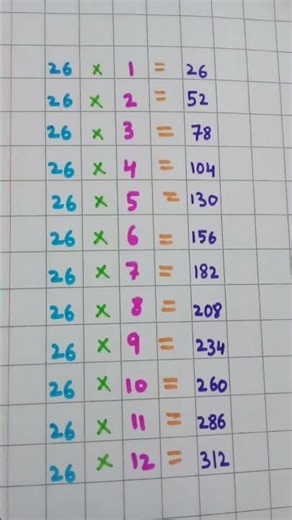 26 × 1 = 26
26 × 2 = 52
26 × 3 = 78
26 × 4 = 104
26 × 5 = 130
26 × 6 = 156
26 × 7 = 182
26 × 8 = 208
26 × 9 = 234
26 × 10 = 260
26 × 11 = 286
26 × 12 = 312